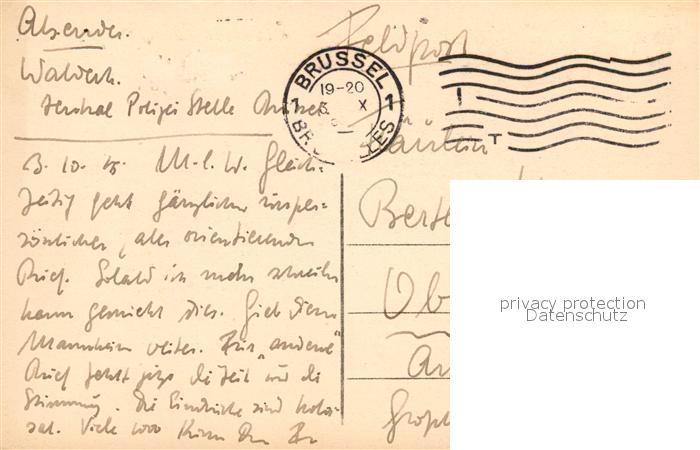 Absender.
Waldeck.
Zentral Polizei Stelle Brüssel
Feldpost
BRUSSEL
19-20
1 5 X 1
BRUXELLES
Fräulein
3. 10. 15 M. l. W. Gleich-
zeitig geht gänzlicher unper-
sönlicher, aber orientierender
Brief. Sobald ich mehr schreiben
kann geschieht dies. Gieb dienen
Mannheim weiter. Für "andere"
Brief fehlt jetzt die Zeit und die
Stimmung. Die Eindrücke sind kolos-
sal. Viele 1000 Küsse Dein
Berte
Ob
Großh
privacy protection
Datenschutz